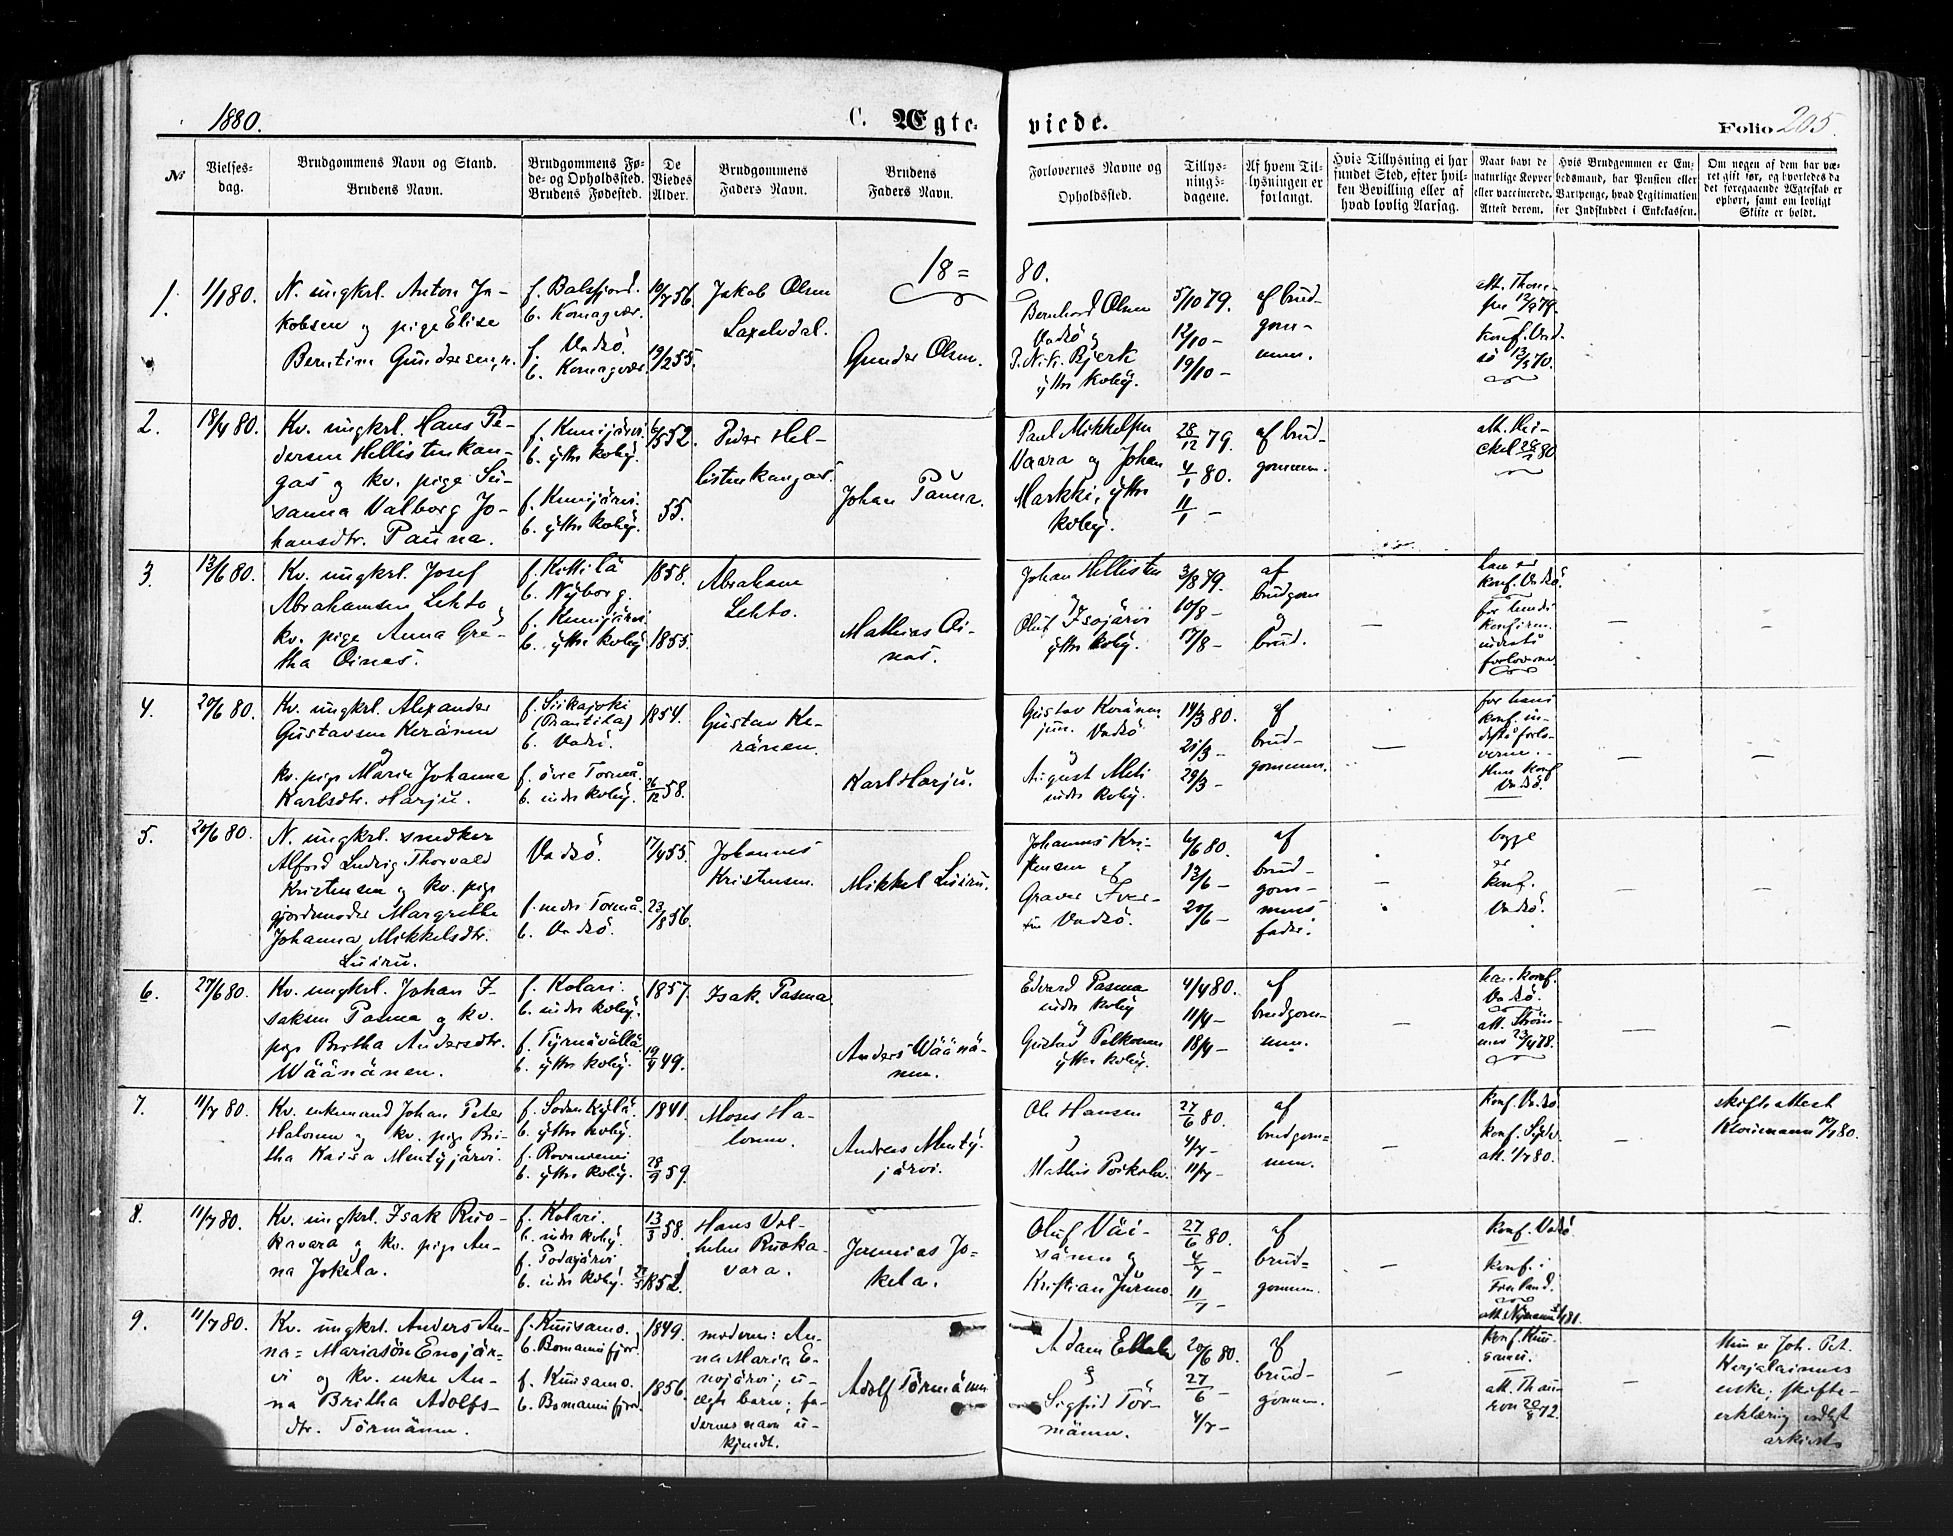 1880.
C. Ægte-
viede.
Folio 205.
№
Vielses-
dag.
Brudgommens Navn og Stand.
Brudens Navn.
Brudgommens Fø-
de- og Opholdssted.
Brudens Fødested.
De
Viedes
Alder.
Brudgommens
Faders Navn.
Brudens
Faders Navn.
Forlovernes Navne og
Opholdssted.
Tillys-
nings-
dagene.
Af hvem Til-
lysningen er
forlangt.
Hvis Tillysning ei har
fundet Sted, efter hvil-
ken Bevilling eller af
hvad lovlig Aarsag.
Naar havt de
naturlige Kopper
eller vaccinerede.
Attest derom.
Hvis Brudgommen er Em-
bedsmand, har Pension eller
Vartpenge, hvad Legitimation
for Indskuddet i Enkekassen.
Om nogen af dem har væ-
ret gift før, og hvorledes da
det foregaaende Ægteskab er
ophørt, samt om lovligt
Skifte er holdt.
18 = 80.
1.
1/1 80.
N. ungkrl. Anton Ja-
kobsen og pige Elise
Berntine Gundersen, n.
f. Balsfjord.
b. Komagvær.
f. Vadsö.
b. Komagvær.
10/7 56.
19/2 55.
Jakob Olsen
Laxelvdal.
Gunder Olsen.
Bernhord Olsen
Vadsö og
P. Nik. Bjerk
yttre Kvbÿ.
5/10 79.
12/10 -
19/10 -
af brud-
gom-
men.
att. Thom-
konf. Vad-
2.
18/4 80.
Kv. ungkrl. Hans Pe-
dersen Hellistenkan-
gas og kv. pige Su-
sanna Valborg Jo-
hansdtr. Pauna.
f. Kemijärvi.
b. yttre Kvbÿ.
f. Kemijärvi.
b. yttre Kvbÿ.
6/5 52.
55.
Peder Hel-
listenkangas.
Johan Pauna.
Paul Mikkelsen
Vaara og Johan
Markki, yttre
Kvbÿ.
28/12 79.
4/1 80.
11/1 -
af brud-
gommen.
3.
13/6 80.
Kv. ungkrl. Josef
Abrahamsen Lehto,
kv. pige Anna Gre-
tha Oinas.
f. Kittilä
b. Nÿborg.
f. Kemijärvi
b. yttre Kvbÿ
1858.
1855.
Abraham
Lehto.
Mathias Oi-
nas.
Johan Hellisten
og
Oluf Isojärvi
yttre Kvbÿ.
3/8 79.
10/8 -
17/8 -
af
brudgom
og
brud.
han er
konf. Vadsö.
for hendes
konfirm.
indestå
forloverne.
4.
20/6 80.
Kv. ungkrl. Alexander
Gustavsen Keränen
og
kv. pige Maria Johanna
Karlsdtr. Harju.
f. Siikajoki
(Rantila)
b. Vadsö.
f. övre Torneå.
b. indre Kvbÿ.
1854.
26/12 58.
Gustav Ke-
ränen.
Karl Harju.
Gustav Keränen
jun. Vadsö
og
August Meli
indre Kvbÿ.
14/3 80.
21/3 -
29/3 -
af
brud-
gommen.
for hans
konf. in-
destå forlo-
verne.
Hun konf
Vadsö.
5.
20/6 80.
N. ungkrl. snedker
Alfred Ludvig Thorvald
Kristensen og kv. pige
gjordemoder Margrethe
Johanna Mikkelsdtr.
Luiru.
Vadsö.
f. nedre Torneå.
b. Vadsö.
17/4 55.
23/8 56.
Johannes
Kristensen.
Mikkel Luiru.
Johannes Kri-
stensen og
Graver Iver-
sen Vadsö.
6/6 80.
13/6 -
20/6 -
af
brud-
gom-
mens
fader.
begge
er
konf.
Vadsö.
6.
27/6 80.
Kv. ungkrl. Johan I-
saksen Pasma og kv.
pige Britha Andersdtr.
Wäänänen.
f. Kolari.
b. indre Kvbÿ.
f. Tyrnävällä.
b. yttre Kvbÿ.
1857.
19/9 49.
Isak Pasma
Anders Wäänä-
nen.
Edvard Pasma
indre Kvbÿ
og
Gustav Pelkonen
yttre Kvbÿ.
4/4 80.
11/4 -
18/4 -
af
brudgom-
men.
han konf.
Vadsö.
att. Ström-
7.
11/7 80.
Kv. enkemand Johan Peter
Halonen og kv. pige Bri-
tha Kaisa Mentÿjärvi.
f. Sodankylä.
b. yttre Kvbÿ.
f. Rovaniemi
b. yttre Kvbÿ.
1841.
28/9 59.
Moses Ha-
lonen.
Andreas Mentÿ-
järvi.
Ole Hansen
og
Mathis Poikela.
27/6 80.
4/7 -
11/7 -
af
brudgom-
men.
konf. Vadsö.
skifteattest
8.
11/7 80.
Kv. ungkrl. Isak Ruo-
kavara og kv. pige An-
na Jokela.
f. Kolari.
b. indre Kvbÿ.
b. indre Kvbÿ.
13/3 58.
Hans Vil-
helm Ruoka-
vara.
Jeremias Jo-
kela.
Oluf Väi-
sänen og
Kristian Jurmo.
27/6 80.
4/7 -
11/7 -
af
brud-
gommen.
konf. Vadsö
konf. i
9.
11/7 80.
Kv. ungkrl. Anders An-
na-Mariasön Enojär-
vi og kv. enke An-
na Britha Adolfs-
dtr. Törmänen.
f. Kuusamo.
b. Bomannsfjord
f. Kuusamo.
b. Bomannsfjord.
1849.
1856.
moderen: An-
na Maria E-
nojärvi; u-
ægte barn; fa-
derens navn u-
kjendt.
Adolf Törmänen
Adam Ettala
og
Sigfrid Tör-
mänen.
20/6 80.
27/6 -
4/7 -
af
brud-
gommen.
konf. Kuu-
samo.
Hun er Joh. Pet.
Kerjalainens
enke; skifte-
erklæring vedlagt
arkivet